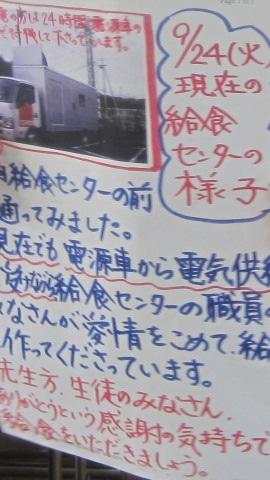 の方は24時間、電源車の
で待機して下さっています。
9/24(火)
現在の
給食
センターの
様子
給食センターの前
通ってみました。
現在でも電源車から電気供給
給食センターの職員の
なさんが愛情をこめて、給
作ってくださっています。
先生方、生徒のみなさん、
ありがとうという感謝の気持ちで
給食をいただきましょう。